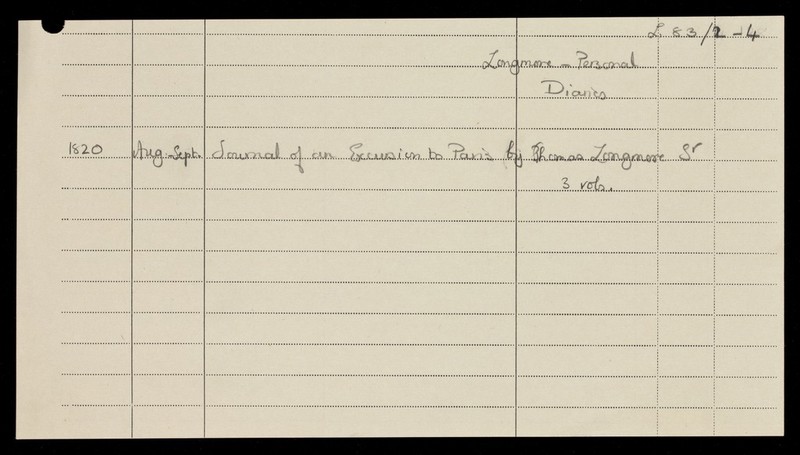 L 83/2-4
Longmore - Personal
Diaries
1820 Aug-Sept. Journal of an Excursion to Paris by Thomas Longmore Sr
3 vols.